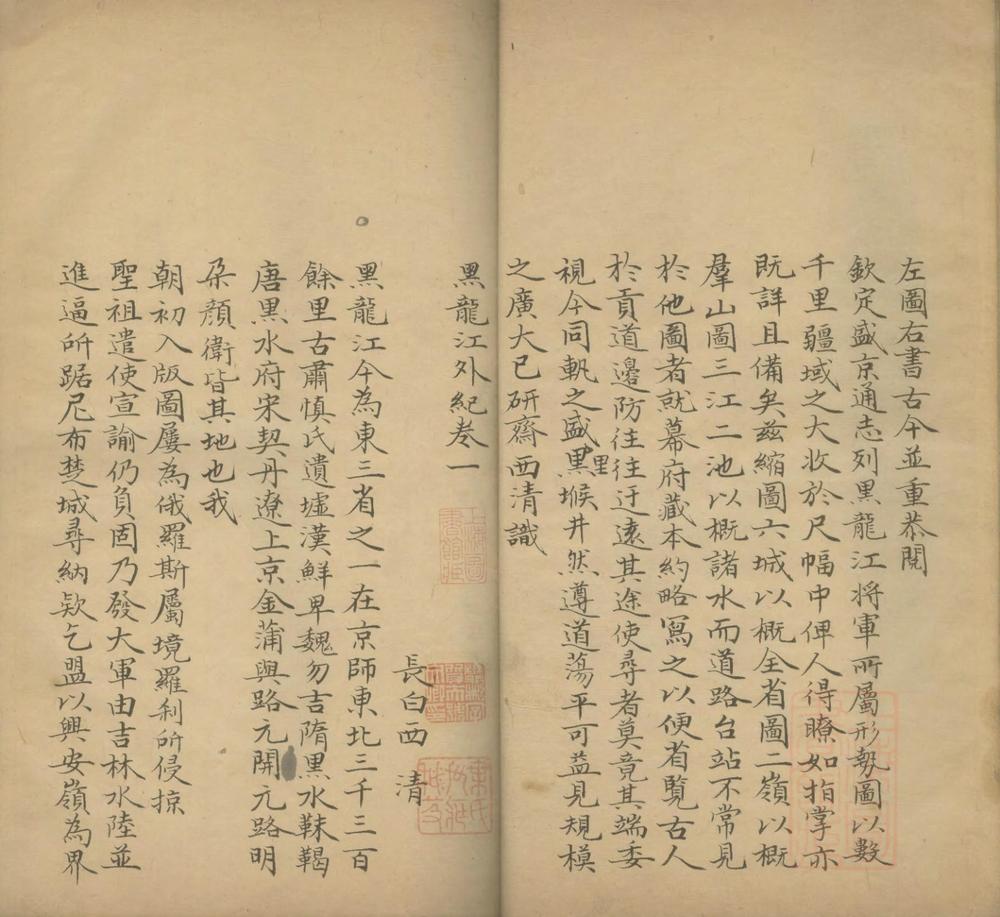 左圖右書古今並重恭閱
欽定盛京通志列黑龍江將軍所屬形勢圖以數
千里疆域之大收於尺幅中俾人得瞭如指掌亦
既詳且備矣茲縮圖六城以概全省圖二嶺以概
羣山圖三江二池以概諸水而道路台站不常見
於他圖者就幕府藏本約略寫之以便省覽古人
於貢道邊防往往迂遠其途使尋者莫竟其端委
視今同軌之盛黑堠井然遵道蕩平可益見規模
里
之廣大已研齋西清識
黑龍江外紀卷一
長白西 清
黑龍江今為東三省之一在京師東北三千三百
餘里古肅慎氏遺墟漢鮮卑魏勿吉隋黑水靺鞨
唐黑水府宋契丹遼上京金蒲與路元開元路明
朵顏衛皆其地也我
朝初入版圖屢為俄羅斯屬境羅利所侵掠
聖祖遣使宣諭仍負固乃發大軍由吉林水陸並
進逼所踞尼布楚城尋納欵乞盟以興安嶺為界